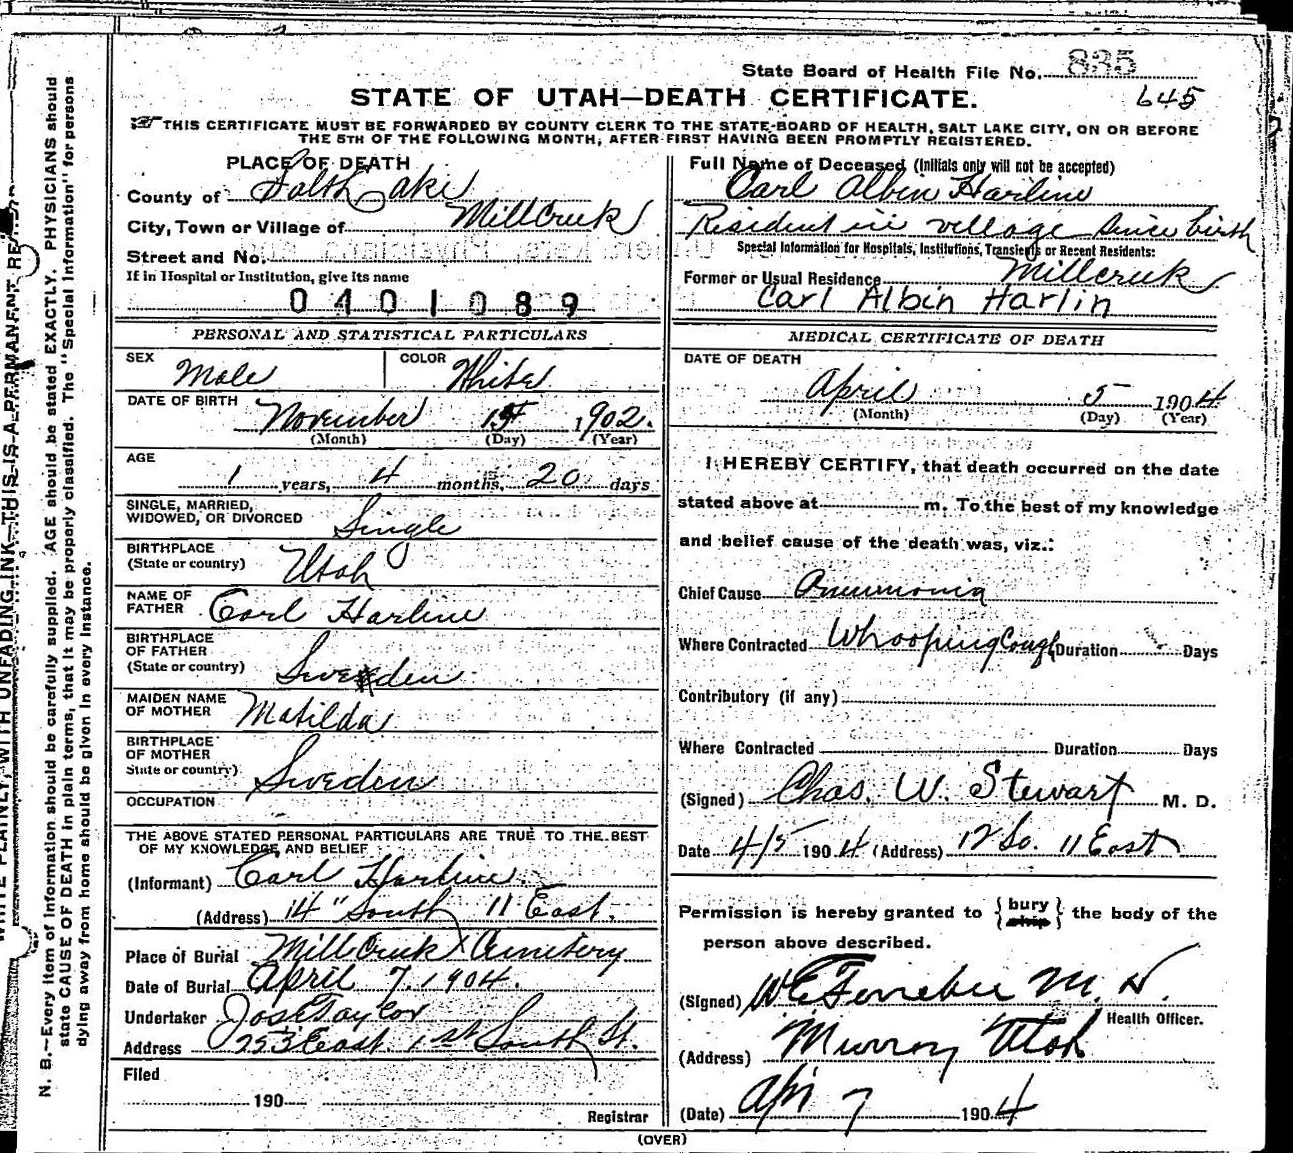 State Board of Health File No. 835
645
STATE OF UTAH—DEATH CERTIFICATE.
THIS CERTIFICATE MUST BE FORWARDED BY COUNTY CLERK TO THE STATE BOARD OF HEALTH, SALT LAKE CITY, ON OR BEFORE
THE 5TH OF THE FOLLOWING MONTH, AFTER FIRST HAVING BEEN PROMPTLY REGISTERED.
PLACE OF DEATH
County of Salt Lake
City, Town or Village of Millcreek
Street and No.
If in Hospital or Institution, give its name
0401089
Full Name of Deceased (Initials only will not be accepted)
Carl Albin Harline
Resident in village since birth
Special Information for Hospitals, Institutions, Transients or Recent Residents:
Former or Usual Residence Millcreek
Carl Albin Harlin
PERSONAL AND STATISTICAL PARTICULARS
SEX Male COLOR White
DATE OF BIRTH November 15 1902.
(Month) (Day) (Year)
AGE
1 years, 4 months, 20 days
SINGLE, MARRIED,
WIDOWED, OR DIVORCED Single
BIRTHPLACE
(State or country) Utah
NAME OF
FATHER Carl Harline
BIRTHPLACE
OF FATHER
(State or country) Sweden
MAIDEN NAME
OF MOTHER Matilda
BIRTHPLACE
OF MOTHER
State or country) Sweden
OCCUPATION
THE ABOVE STATED PERSONAL PARTICULARS ARE TRUE TO THE BEST
OF MY KNOWLEDGE AND BELIEF
(Informant) Carl Harline
(Address) 14" South 11 East.
Place of Burial Millcreek Cemetery
Date of Burial April 7, 1904.
Undertaker Jos E Taylor
Address 253 East 1st South St.
Filed
190
Registrar
MEDICAL CERTIFICATE OF DEATH
DATE OF DEATH
April 5 1904
(Month) (Day) (Year)
I HEREBY CERTIFY, that death occurred on the date
stated above at m. To the best of my knowledge
and belief cause of the death was, viz.:
Chief Cause Pneumonia
Where Contracted Whooping Cough Duration Days
Contributory (if any)
Where Contracted Duration Days
(Signed) Chas. W. Stewart M. D.
Date 4/5 1904 (Address) 12 So. 11 East
Permission is hereby granted to {bury ship} the body of the
person above described.
(Signed) M. D.
Health Officer.
(Address) Murray Utah
(Date) Apr 7 1904
(OVER)
N. B.—Every item of information should be carefully supplied. AGE should be stated EXACTLY. PHYSICIANS should
state CAUSE OF DEATH in plain terms, that it may be properly classified. The "Special Information" for persons
dying away from home should be given in every instance.
WRITE PLAINLY, WITH UNFADING INK—THIS IS A PERMANENT